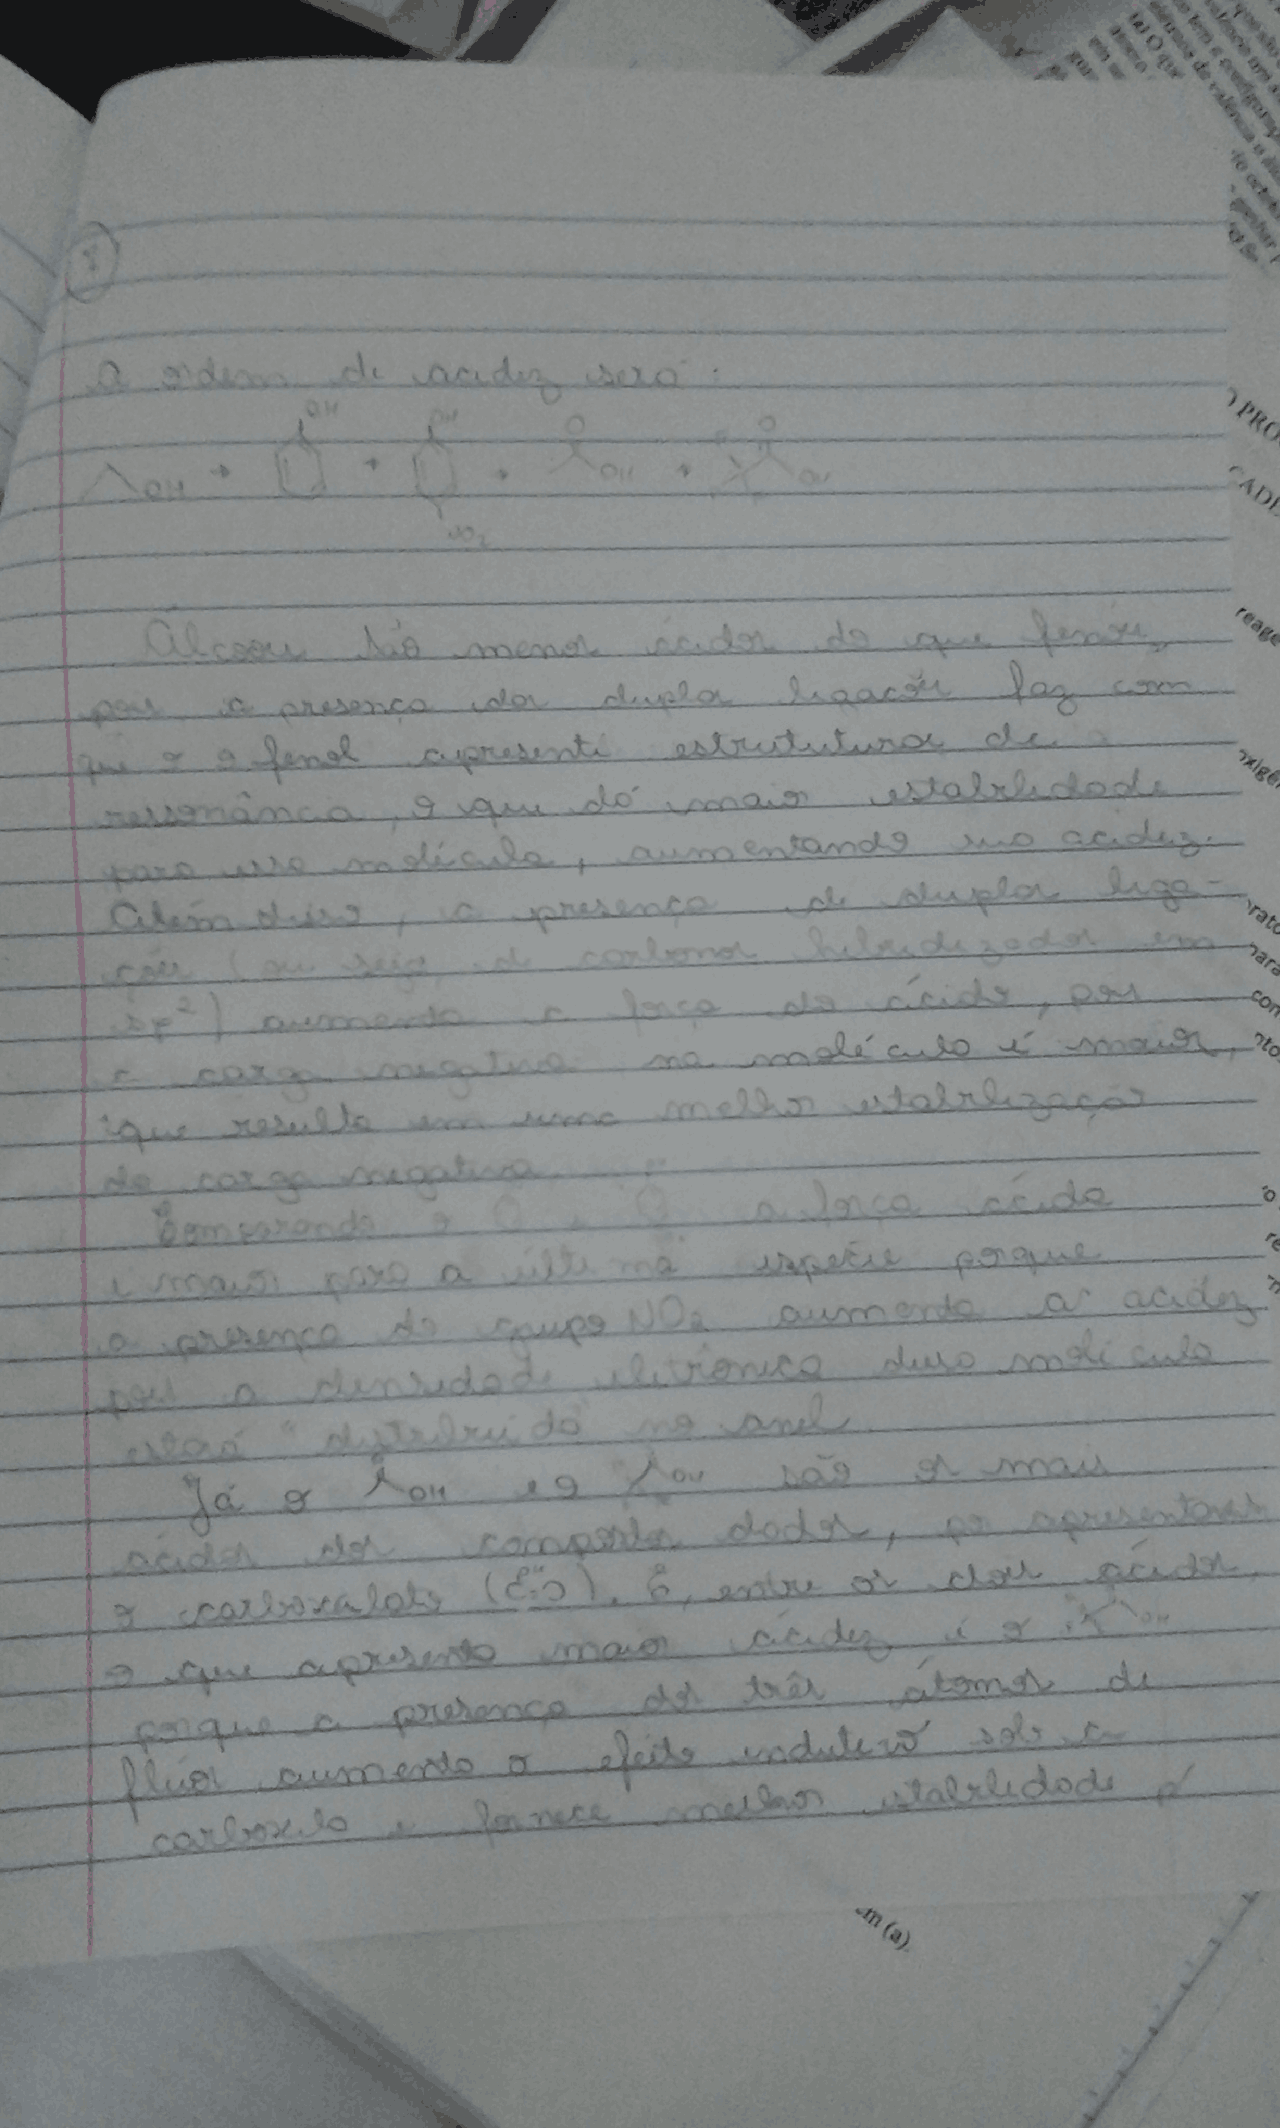 A ordem de acidez será:
OH OH O O
OH OH
NO2
Álcoois são menos ácidos do que fenóis,
pois a presença das duplas ligações faz com
que o fenol apresente estrututuras de
ressonância, o que dá maior estabilidade
para essa molécula, aumentando sua acidez.
Além disso, a presença de duplas liga-
ções (ou seja, de carbonos hibridizados em
sp²) aumenta a força do ácido, pois
a carga negativa na molécula é maior,
que resulta em uma melhor estabilização
da carga negativa.
Comparando o e a força ácida
é maior para a última espécie porque
a presença do grupo NO2 aumenta a acidez
pois a densidade eletrônica dessa molécula
estará "distribuída" no anel.
Já o OH e o OH são os mais
ácidos dos compostos dados, por apresentarem
o carboxilato. E, entre os dois ácidos,
o que apresenta maior acidez é o OH
porque a presença dos três átomos de
flúor aumenta o efeito indutivo sob a
carboxila e fornece melhor estabilidade p/
PRO
CADE
reage
oxigên
para
con
em (a).